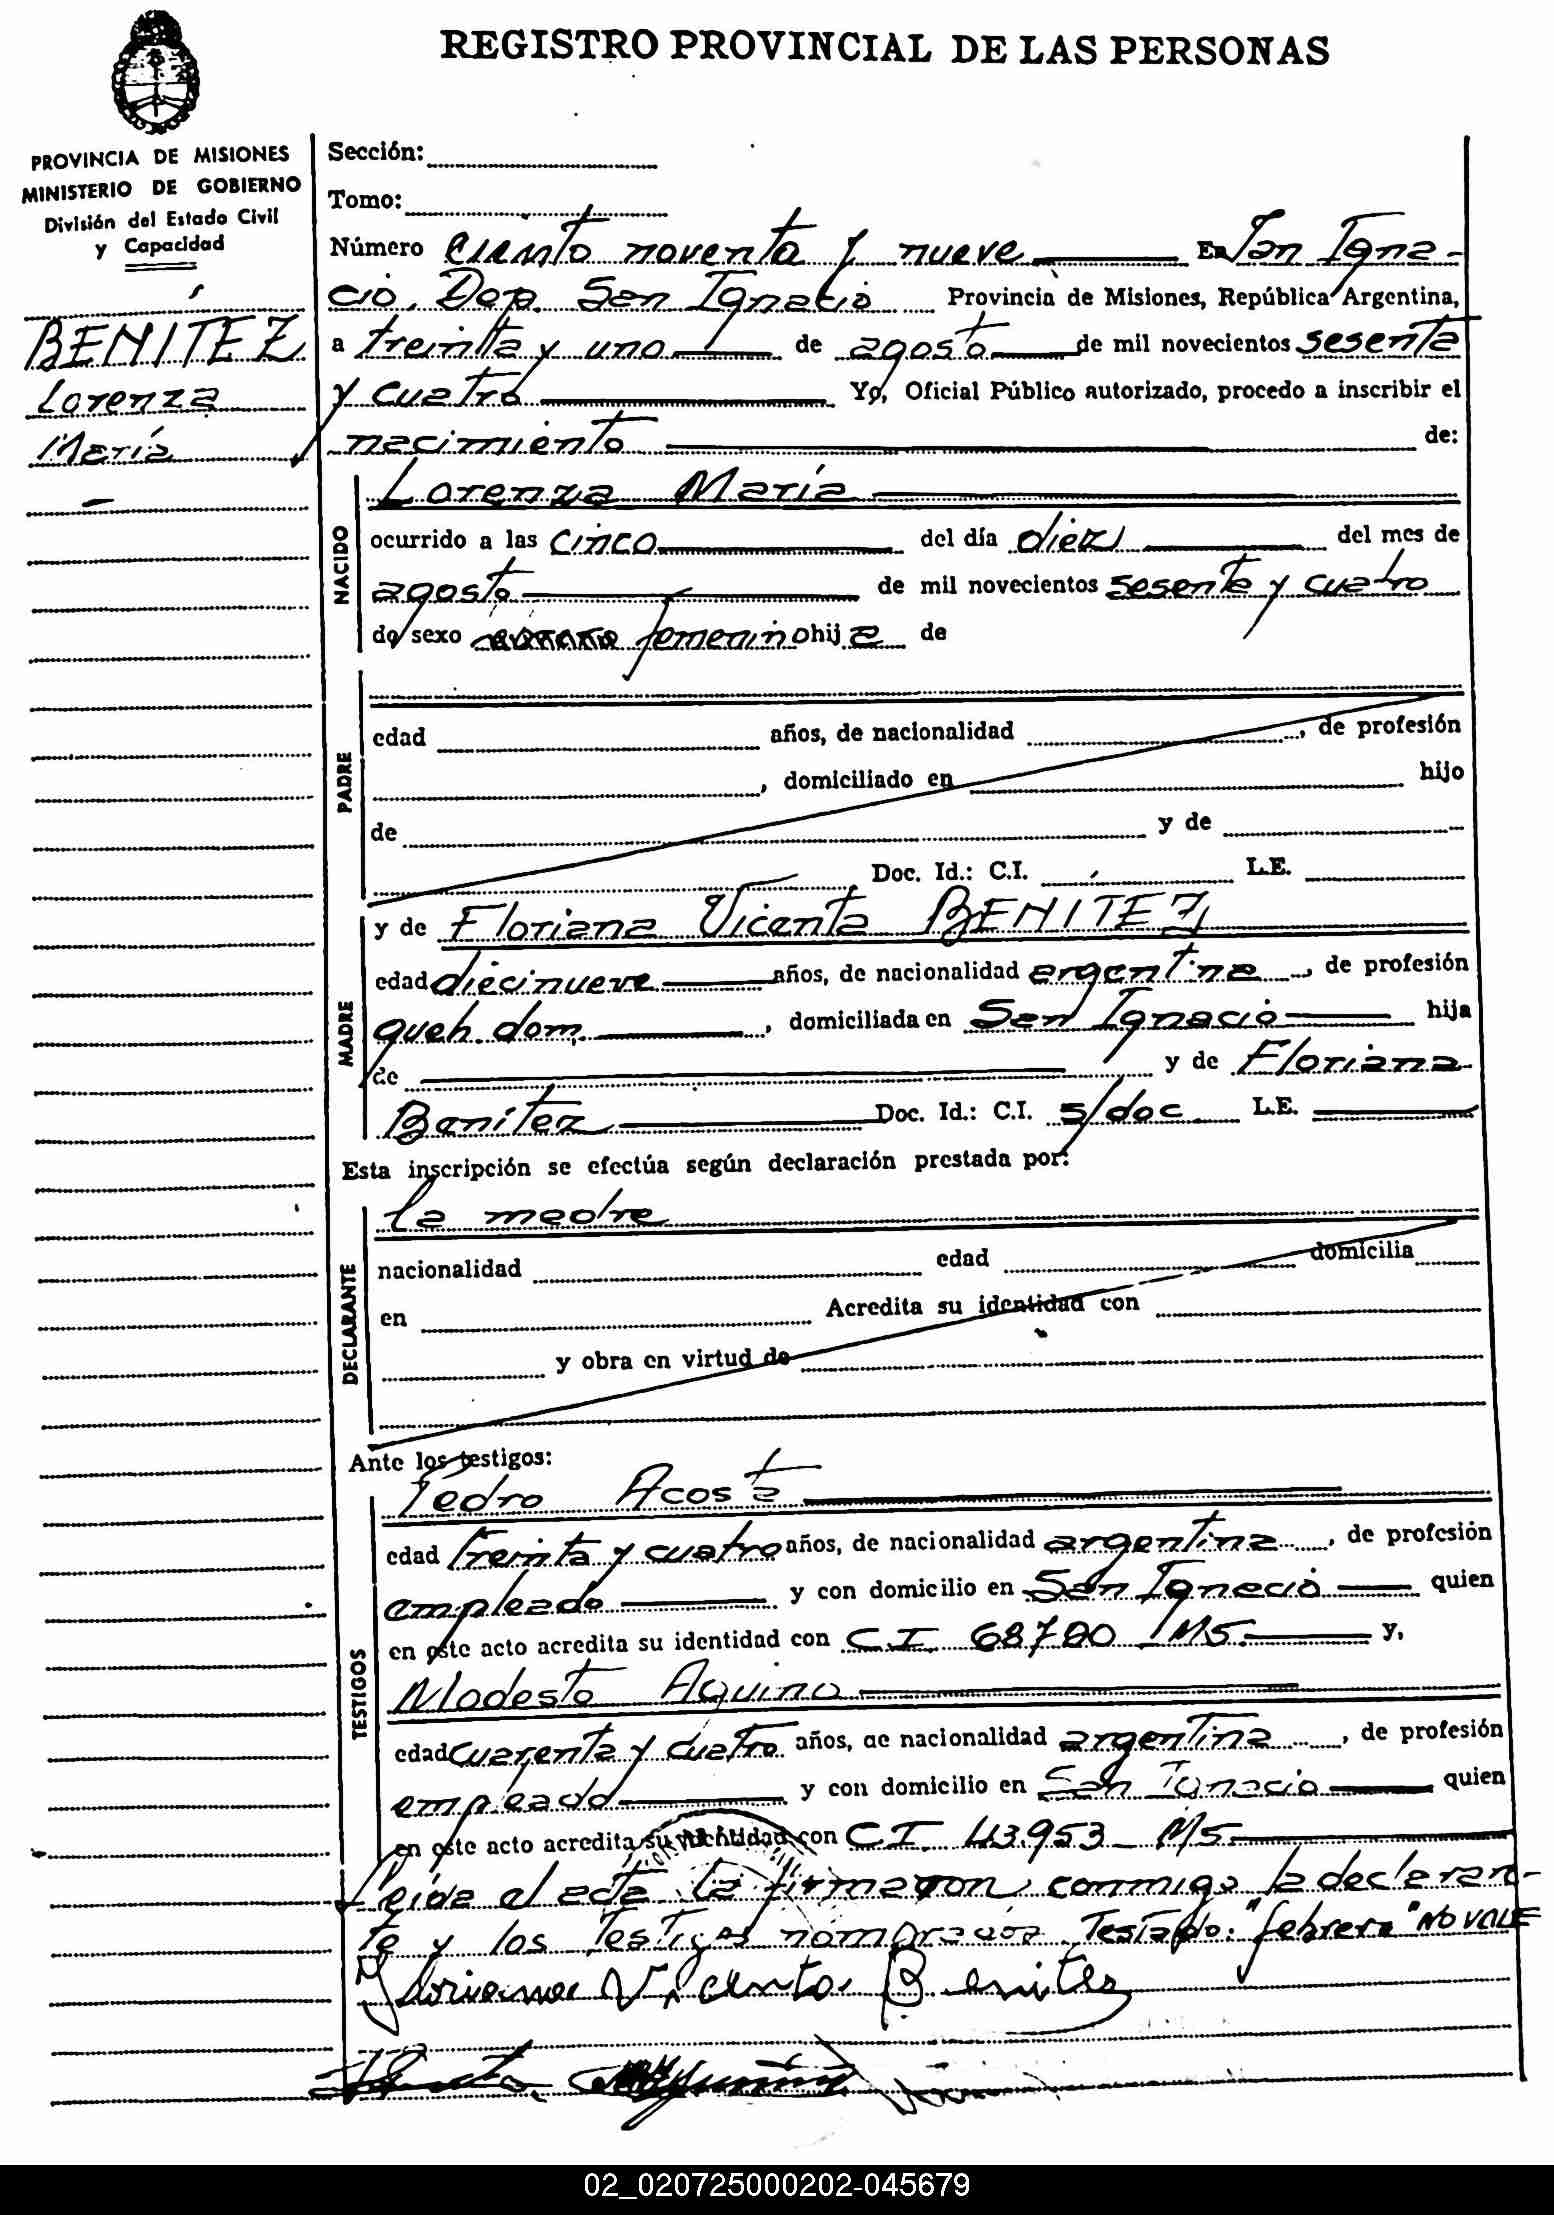 REGISTRO PROVINCIAL DE LAS PERSONAS
PROVINCIA DE MISIONES
MINISTERIO DE GOBIERNO
División del Estado Civil
y Capacidad
BENÍTEZ
Lorenza
María
Sección:
Tomo:
Número ciento noventa y nueve En San Igna-
cio, Dep. San Ignacio Provincia de Misiones, República Argentina,
a treinta y uno de agosto de mil novecientos sesenta
y cuatro Yo, Oficial Público autorizado, procedo a inscribir el
nacimiento de:
NACIDO
Lorenza María
ocurrido a las cinco del día diez del mes de
agosto de mil novecientos sesenta y cuatro
de sexo femenino hija de
PADRE
edad años, de nacionalidad , de profesión
, domiciliado en hijo
de y de
Doc. Id.: C.I. L.E.
MADRE
y de Floriana Vicenta BENÍTEZ
edad diecinueve años, de nacionalidad argentina , de profesión
queh. dom. , domiciliada en San Ignacio hija
de y de Floriana
Benítez Doc. Id.: C.I. s/doc L.E.
Esta inscripción se efectúa según declaración prestada por:
DECLARANTE
la madre
nacionalidad edad domicilia
en Acredita su identidad con
y obra en virtud de
Ante los testigos:
TESTIGOS
Pedro Acosta
edad treinta y cuatro años, de nacionalidad argentina , de profesión
empleado y con domicilio en San Ignacio quien
en este acto acredita su identidad con C.I. Ms. y,
Modesto Aquino
edad cuarenta y cuatro años, de nacionalidad argentina , de profesión
empleado y con domicilio en San Ignacio quien
en este acto acredita su identidad con C.I. 43.953 Ms.
Leída el acta la firmaron conmigo la declaran-
te y los testigos nombrados. Testado: "febrero" NO VALE
Floriana Vicenta Benitez
02_020725000202-045679